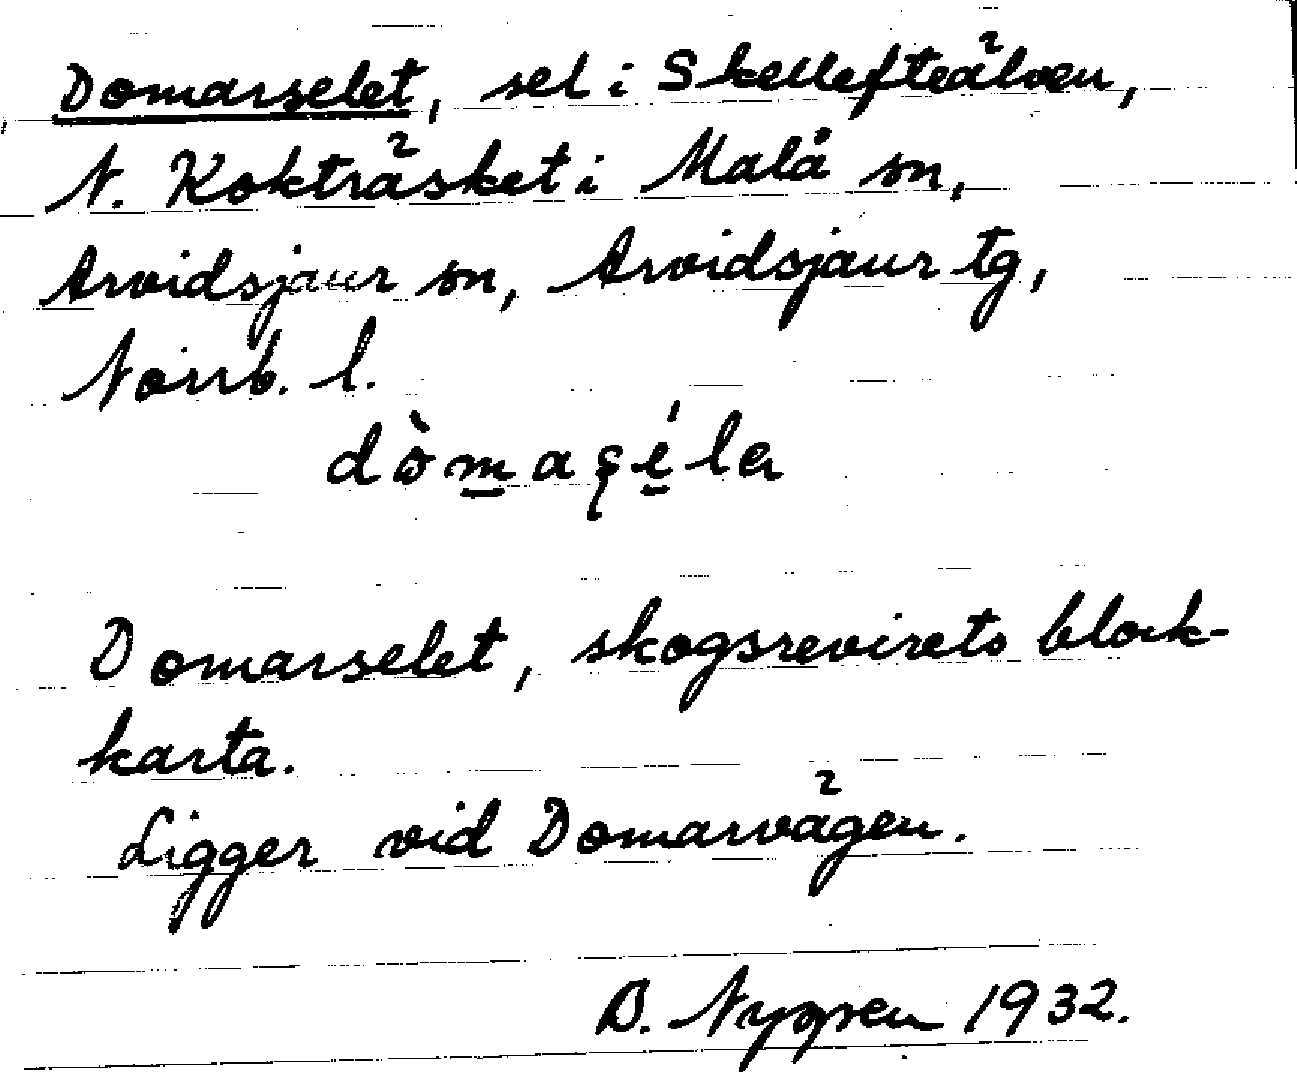 Domarselet, sel i Skellefteälven,
N. Kokträsket i Malå sn,
Arvidsjaur sn, Arvidsjaur tg,
Norrb. l.
dòmaʂé̱la
Domarselet, skogsrevirets block-
karta.
Ligger vid Domarvägen.
B. Nygren 1932.